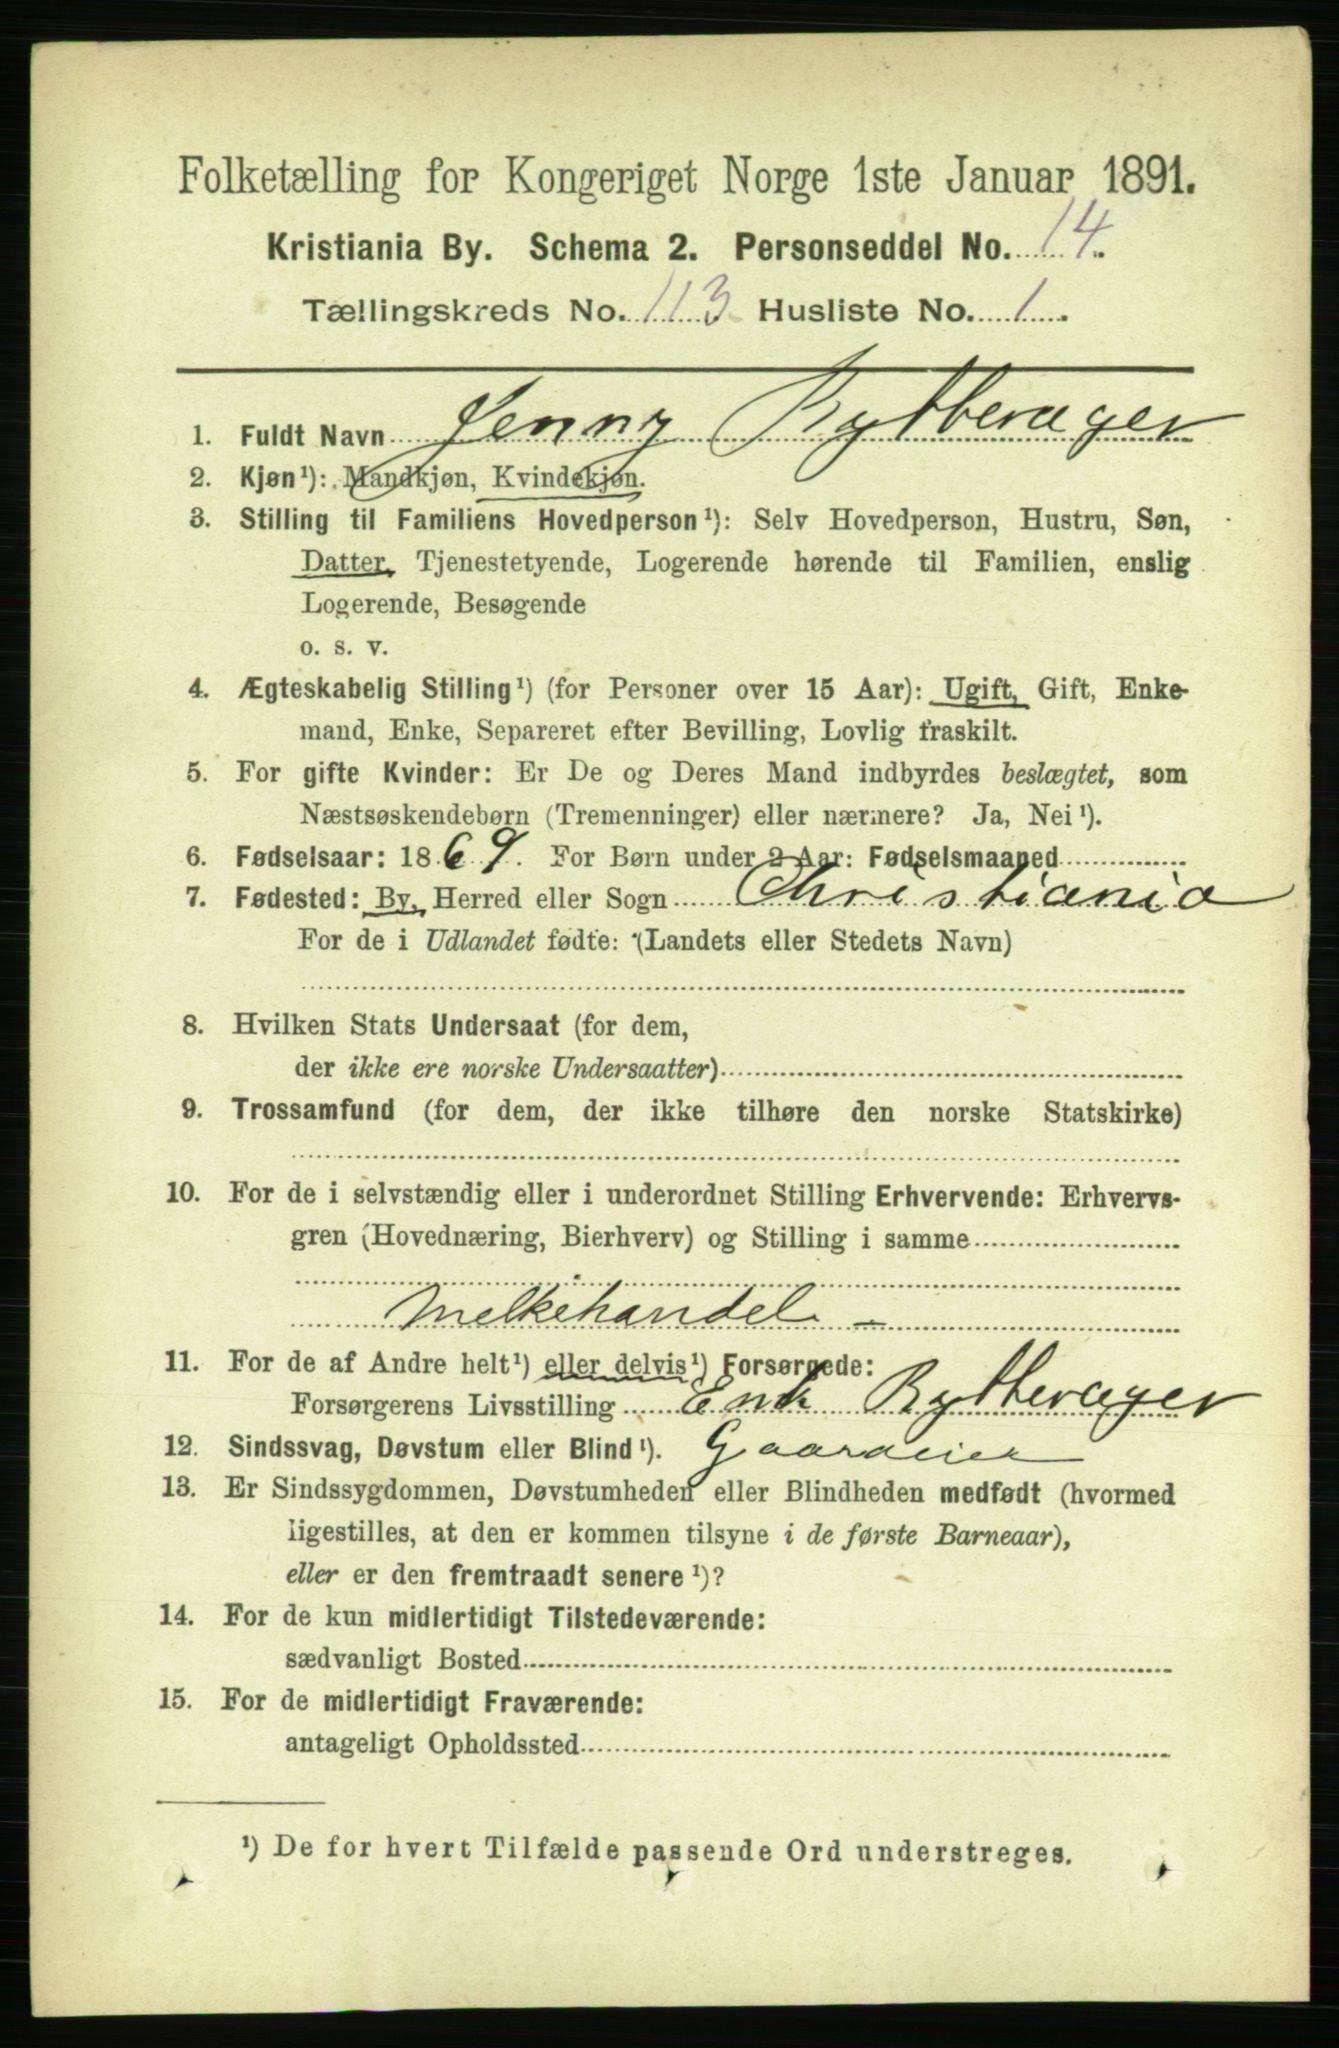 Folketælling for Kongeriget Norge 1ste Januar 1891.
Kristiania By. Schema 2. Personseddel No. 14.
Tællingskreds No. 113 Husliste No. 1.
1. Fuldt Navn Jenny Rytterager
2. Kjøn¹): Mandkjøn, Kvindekjøn.
3. Stilling til Familiens Hovedperson¹): Selv Hovedperson, Hustru, Søn,
Datter, Tjenestetyende, Logerende hørende til Familien, enslig
Logerende, Besøgende
o. s. v.
4. Ægteskabelig Stilling¹) (for Personer over 15 Aar): Ugift, Gift, Enke-
mand, Enke, Separeret efter Bevilling, Lovlig fraskilt.
5. For gifte Kvinder: Er De og Deres Mand indbyrdes beslægtet, som
Næstsøskendebørn (Tremenninger) eller nærmere? Ja, Nei¹).
6. Fødselsaar: 1869. For Børn under 2 Aar: Fødselsmaaned
7. Fødested: By, Herred eller Sogn Christiania
For de i Udlandet fødte: (Landets eller Stedets Navn)
8. Hvilken Stats Undersaat (for dem,
der ikke ere norske Undersaatter)
9. Trossamfund (for dem, der ikke tilhøre den norske Statskirke)
10. For de i selvstændig eller i underordnet Stilling Erhvervende: Erhvervs-
gren (Hovednæring, Bierhverv) og Stilling i samme
Melkehandel –
11. For de af Andre helt¹) eller delvis¹) Forsørgede:
Forsørgerens Livsstilling Enk Rytterager
12. Sindssvag, Døvstum eller Blind¹). Gaardeier
13. Er Sindssygdommen, Døvstumheden eller Blindheden medfødt (hvormed
ligestilles, at den er kommen tilsyne i de første Barneaar),
eller er den fremtraadt senere¹)?
14. For de kun midlertidigt Tilstedeværende:
sædvanligt Bosted
15. For de midlertidigt Fraværende:
antageligt Opholdssted
¹) De for hvert Tilfælde passende Ord understreges.